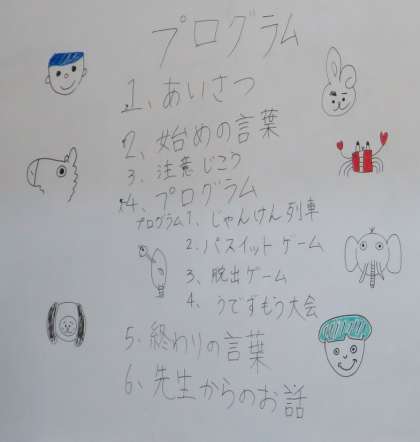 プログラム
1、あいさつ
2、始めの言葉
3、注意じこう
4、プログラム
プログラム1、じゃんけん列車
2、パスイットゲーム
3、脱出ゲーム
4、うでずもう大会
5、終わりの言葉
6、先生からのお話